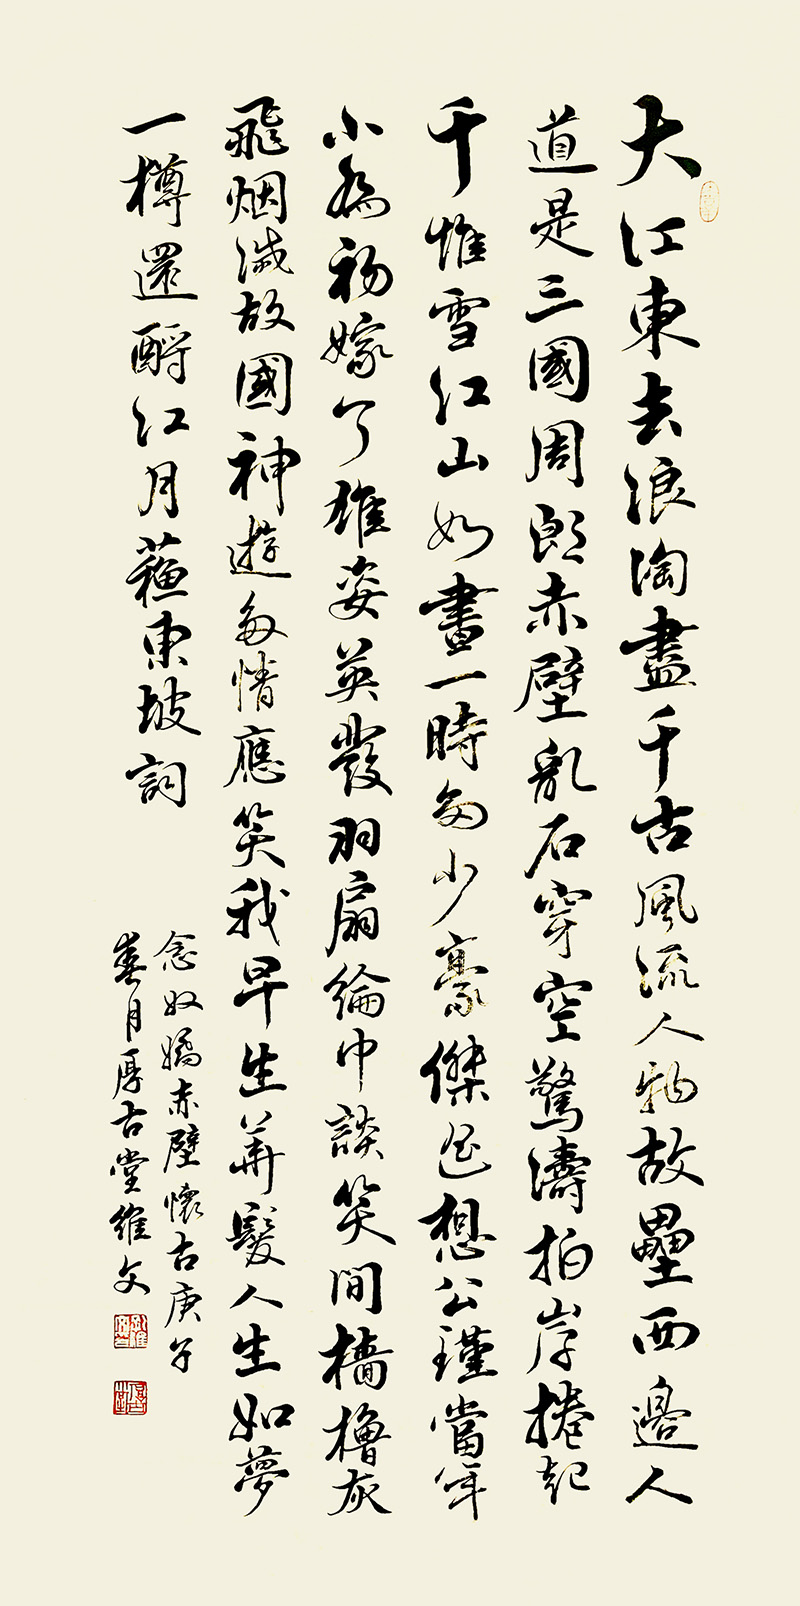 大江東去浪淘盡千古風流人物故壘西邊人
道是三國周郎赤壁亂石穿空驚濤拍岸捲起
千堆雪江山如畫一時多少豪傑遥想公瑾當年
小喬初嫁了雄姿英發羽扇綸巾談笑間檣櫓灰
飛烟滅故國神遊多情應笑我早生華髮人生如夢
一樽還酹江月蘇東坡詞
念奴嬌赤壁懷古庚子
春月厚古堂維文